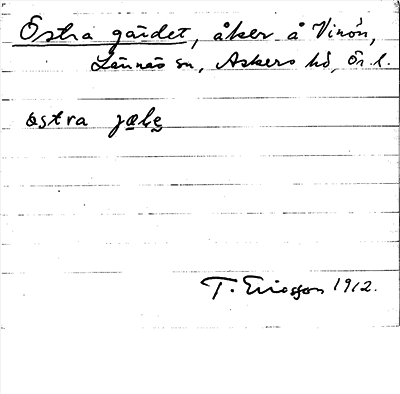 Östra gärdet, åker å Vinön,
Lännäs sn, Askers hd, Ör. l.
östra jæḷe
T. Ericsson 1912.